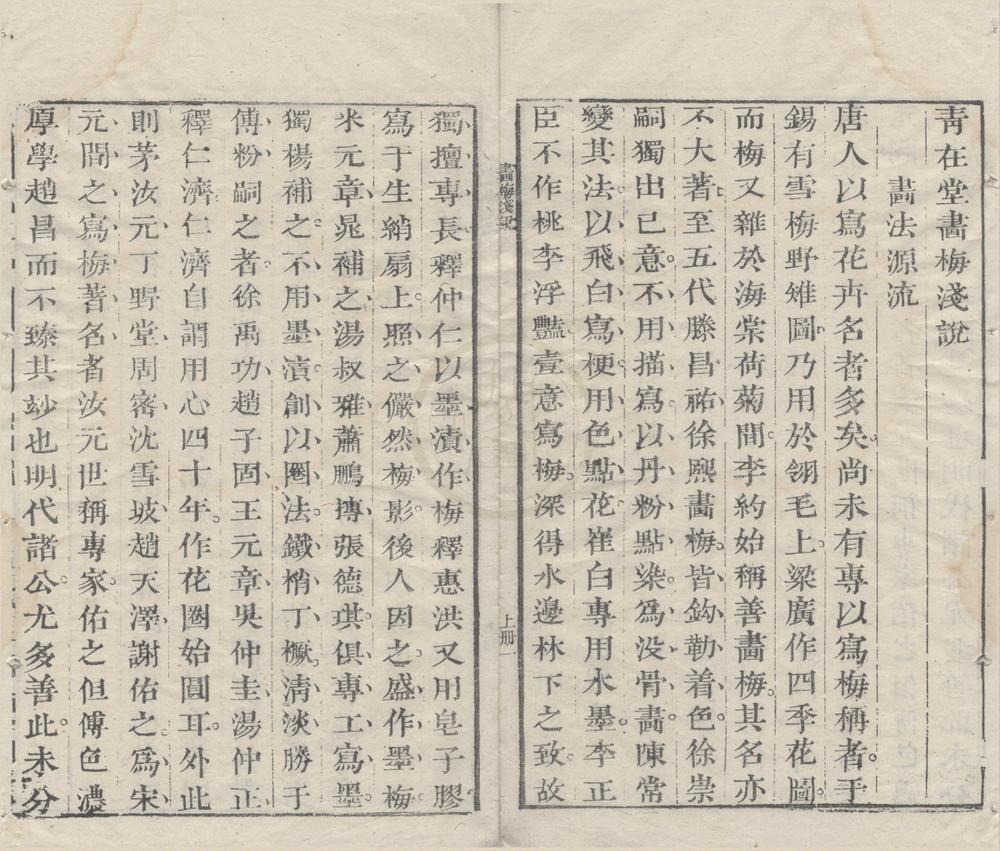 靑在堂畫梅淺說
畫法源流
唐人以寫花卉名者多矣尚未有專以寫梅稱者。于
錫有雪梅野雉圖。乃用於翎毛上。梁廣作四季花圖。
而梅又雜於海棠荷菊間。李約始稱善畫梅。其名亦
不大著。至五代滕昌祐徐熙畫梅。皆鈎勒着色。徐崇
嗣獨出己意。不用描寫。以丹粉點染。爲没骨畫。陳常
變其法。以飛白寫梗。用色點花。崔白專用水墨。李正
臣不作桃李浮豔。壹意寫梅。深得水邊林下之致。故
獨擅專長。釋仲仁以墨漬作梅。釋惠洪又用皂子膠
寫于生綃扇上。照之儼然梅影。後人因之。盛作墨梅。
米元章晁補之湯叔雅蕭鵬摶張德琪。俱專工寫墨。
獨楊補之。不用墨漬。創以圈法。鐵梢丁橛。淸淡勝于
傅粉。嗣之者。徐禹功趙子固王元章吳仲圭湯仲正
釋仁濟。仁濟自謂用心四十年。作花圈始圓耳。外此
則茅汝元丁野堂周密沈雪坡趙天澤謝佑之。爲宋
元間之寫梅著名者。汝元世稱專家。佑之但傅色濃
厚。學趙昌而不臻其妙也。明代諸公。尤多善此。未分
畫梅淺說
上册一